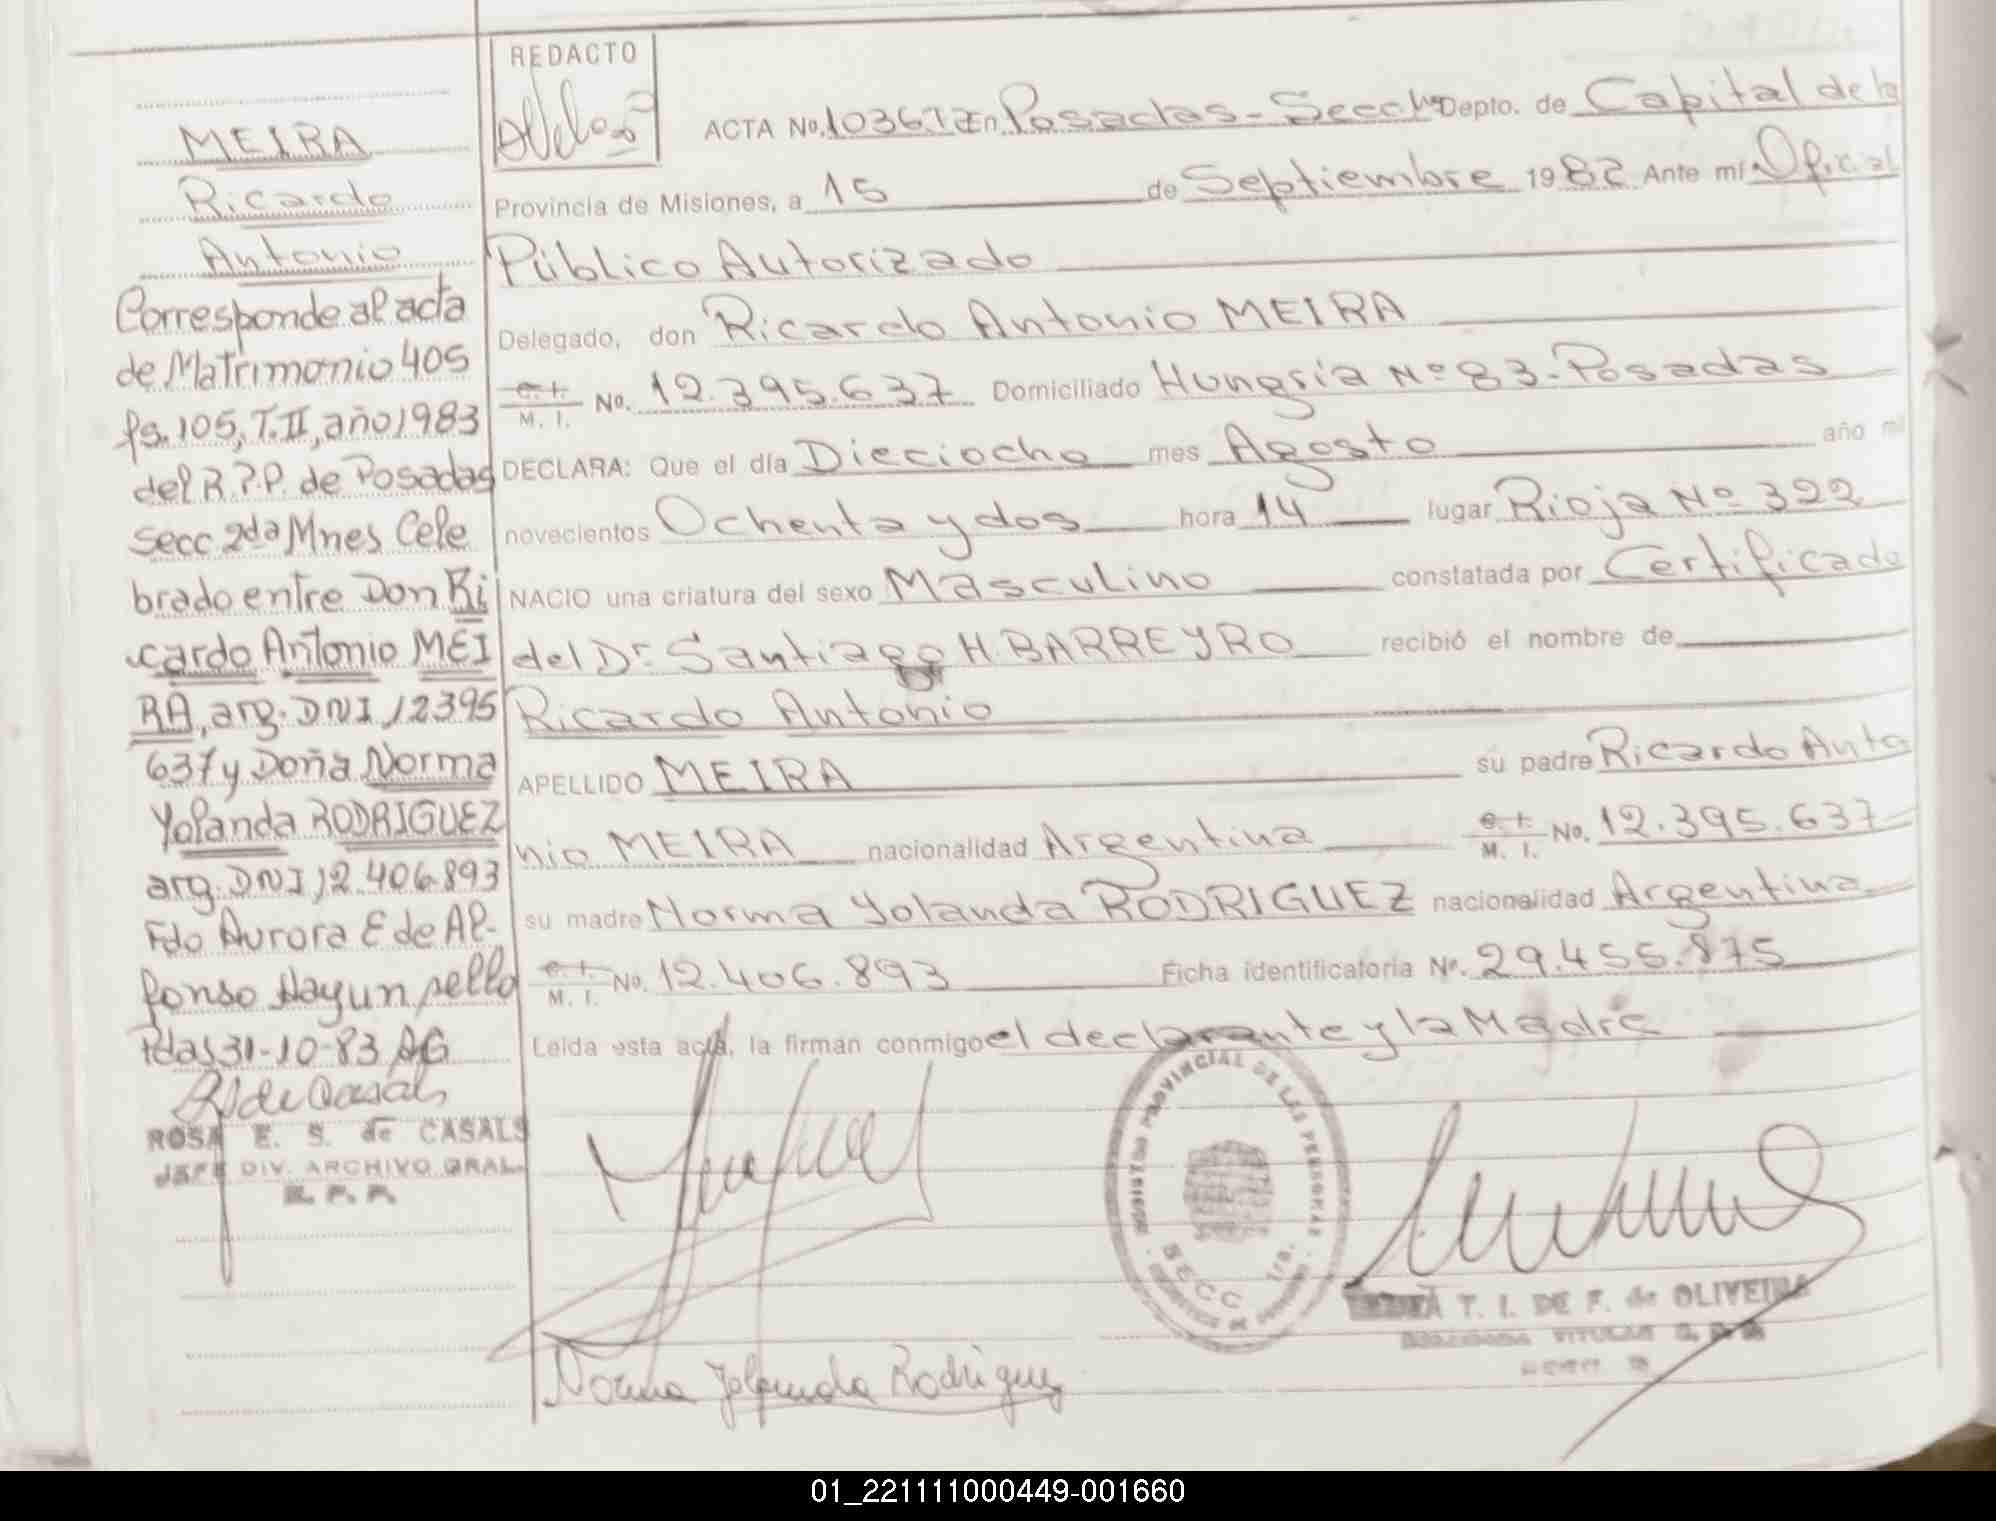 MEIRA
Ricardo
Antonio
Corresponde al acta
de Matrimonio 405
fs. 105, T. II, año 1983
del R.P.P. de Posadas
secc 2da Mnes Cele
brado entre Don Ri
cardo Antonio MEI
RA, arg. DNI 12395
637 y Doña Norma
Yolanda RODRIGUEZ
arg. DNI 12.406.893
Fdo Aurora E de Al-
fonso Hay un sello
Pdas 31-10-83 AG
ROSA E. S. de CASALS
JEFE DIV. ARCHIVO GRAL.
R. P. P.
REDACTO
ACTA No. 1036 En Posadas - Secc Depto. de Capital de la
Provincia de Misiones, a 15 de Septiembre 1982 Ante mí Oficial
Público Autorizado
Delegado, don Ricardo Antonio MEIRA
C. I. M. I. No. 12.395.637 Domiciliado Hungría Nº 83 - Posadas
DECLARA: Que el día Dieciocho mes Agosto año mil
novecientos Ochenta y dos hora 14 lugar Rioja Nº 322
NACIO una criatura del sexo Masculino constatada por Certificado
del Dr. Santiago H. BARREYRO recibió el nombre de
Ricardo Antonio
APELLIDO MEIRA su padre Ricardo Anto
nio MEIRA nacionalidad Argentina C. I. M. I. No. 12.395.637
su madre Norma Yolanda RODRIGUEZ nacionalidad Argentina
C. I. M. I. No. 12.406.893 Ficha identificatoria Nº. 29.455.875
Leida esta acta, la firman conmigo el declarante y la Madre
REGISTRO PROVINCIAL DE LAS PERSONAS
SECC 1ra.
T. I. DE F. de OLIVEIRA
TITULAR
Norma Yolanda Rodriguez
01_221111000449-001660